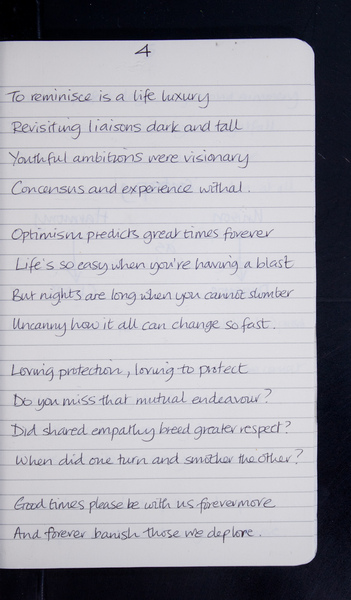 4
To reminisce is a life luxury
Revisiting liaisons dark and tall
Youthful ambitions were visionary
Concensus and experience withal.
Optimism predicts great times forever
Life's so easy when you're having a blast
But nights are long when you cannot slumber
Uncanny how it all can change so fast.
Loving protection, loving to protect
Do you miss that mutual endeavour?
Did shared empathy breed greater respect?
When did one turn and smother the other?
Good times please be with us forevermore
And forever banish those we deplore.